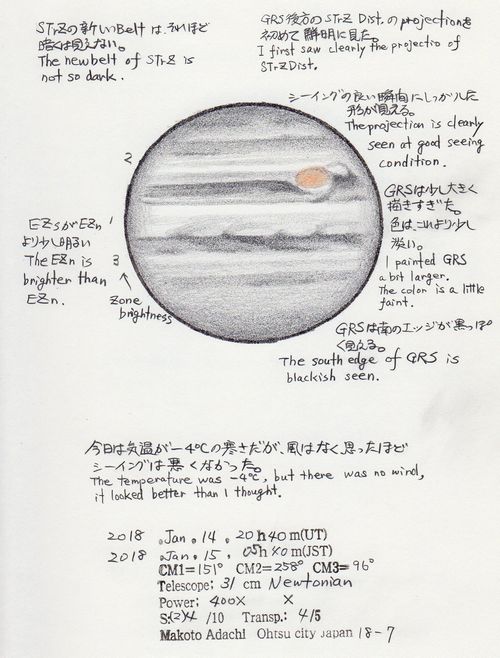 STrZの新しいBeltは、それほど
暗くは見えない。
The new belt of STrZ is
not so dark.
GRS後方のSTrZ Dist.のprojectionを
初めて鮮明に見た。
I first saw clearly the projectio of
STrZ Dist.
シーイングの良い瞬間にしっかりした
形が見える。
The projection is clearly
seen at good seeing
condition.
2
GRSは少し大きく
描きすぎた。
色は、これより少し
淡い。
I painted GRS
a bit larger.
The color is a little
faint.
EZsがEZn
より少し明るい
The EZn is
brighter than
EZn.
1
3
Zone
brightness
GRSは南のエッジが黒っぽ
く見える。
The south edge of GRS is
blackish seen.
今日は気温が-4℃の寒さだが、風はなく思ったほど
シーイングは悪くなかった。
The temperature was -4℃, but there was no wind,
it looked better than I thought.
2018 . Jan . 14 . 20h40m(UT)
2018 . Jan . 15 . 05h40m(JST)
CM1=151° CM2=258° CM3=96°
Telescope: 31 cm Newtonian
Power: 400X X
S:(2)4 /10 Transp.: 4/5
Makoto Adachi Ohtsu city Japan 18-7